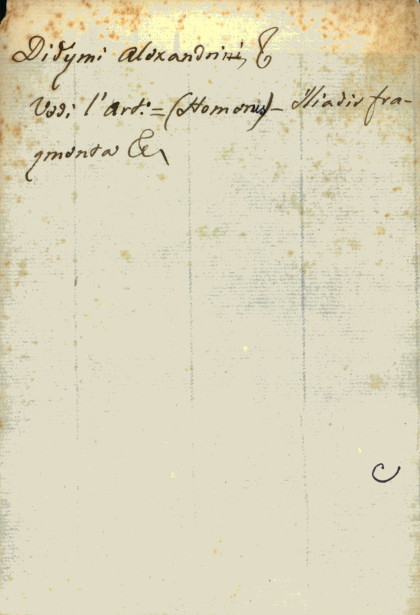 Didymi Alexandrini, &
Vedi l'Art.º = (Homerus) - Iliadis fra-
gmenta &c,